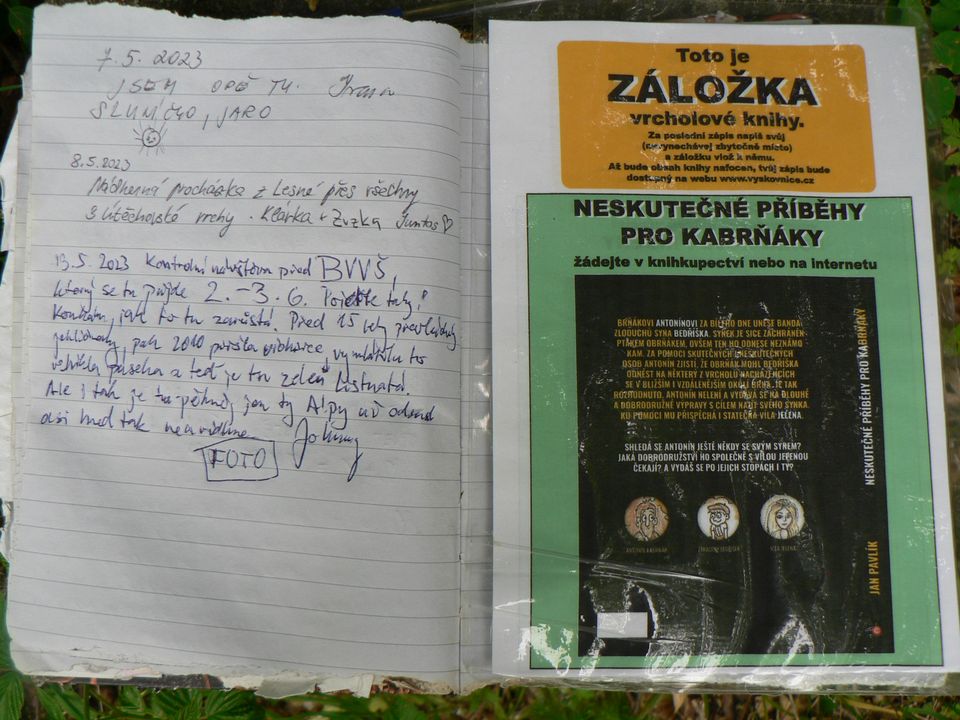 7.5.2023
JSEM OPĚT TU.
SLUNÍČKO, JARO
8.5.2023
Nádherná procházka z Lesné přes všechny
3 útěchovské vrchy. Klárka + Zuzka
13.5.2023 Kontrolní návštěva před BVVŠ,
který se tu půjde 2.-3.6. Pojeďte taky!
Koukám, jak to tu zarůstá. Před 15 lety
pak 2010 přišla vichřice, vymlátila to
paseka a teď je tu zeleň listnatá!
Ale i tak je tu pěkně, jen ty Alpy už odsud
asi hned tak neuvidíme. Johnny
FOTO
Toto je
ZÁLOŽKA
vrcholové knihy.
Za poslední zápis napiš svůj
(nevynechávej zbytečně místo)
a záložku vlož k němu.
Až bude obsah knihy nafocen, tvůj zápis bude
dostupný na webu www.vyskovnice.cz
NESKUTEČNÉ PŘÍBĚHY
PRO KABRŇÁKY
žádejte v knihkupectví nebo na internetu
BRŇÁKOVI ANTONÍNOVI ZA BÍLÉHO DNE UNESE BANDA
ZLODUCHŮ SYNA BEDŘIŠKA. SYNEK JE SICE ZACHRÁNĚN
PTÁKEM OBRŇÁKEM, OVŠEM TEN HO ODNESE NEZNÁMO
KAM. ZA POMOCI SKUTEČNÝCH I NESKUTEČNÝCH
OSOB ANTONÍN ZJISTÍ, ŽE OBRŇÁK MOHL BEDŘIŠKA
ODNÉST NA NĚKTERÝ Z VRCHOLŮ NACHÁZEJÍCÍCH
SE V BLIŽŠÍM I VZDÁLENĚJŠÍM OKOLÍ BRNA. JE TAK
ROZHODNUTO, ANTONÍN NELENÍ A VYDÁVÁ SE NA DLOUHÉ
A DOBRODRUŽNÉ VÝPRAVY S CÍLEM NAJÍT SVÉHO SYNKA.
KU POMOCI MU PŘISPĚCHÁ I STATEČNÁ VÍLA JELENA.
SHLEDÁ SE ANTONÍN JEŠTĚ NĚKDY SE SVÝM SYNEM?
JAKÁ DOBRODRUŽSTVÍ HO SPOLEČNĚ S VÍLOU JELENOU
ČEKAJÍ? A VYDÁŠ SE PO JEJICH STOPÁCH I TY?
ANTONÍN KABRŇÁK
VÍLA JELENA
NESKUTEČNÉ PŘÍBĚHY PRO KABRŇÁKY
JAN PAVLÍK